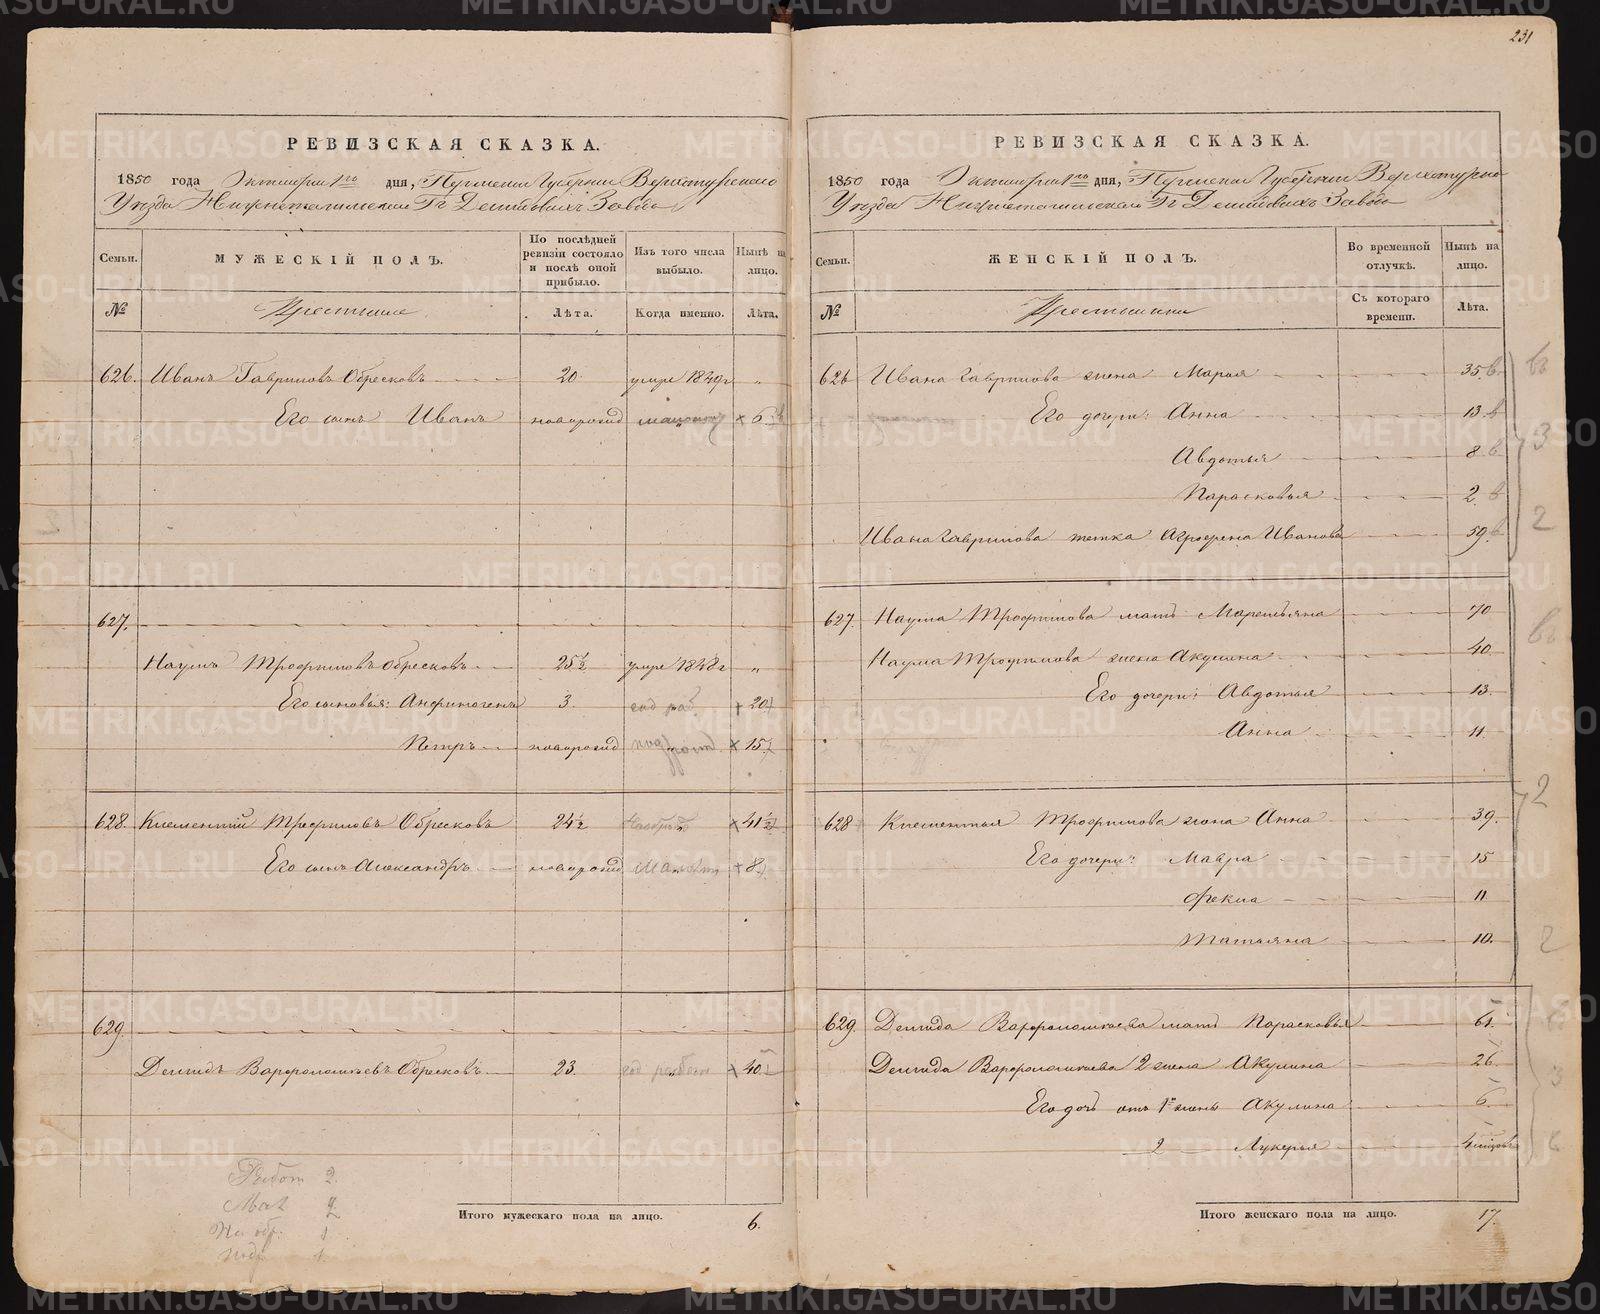 231
РЕВИЗСКАЯ СКАЗКА.
1850 года Октября 1го дня, Пермской Губернии Верхотурскаго
Уезда Нижнетагильскаго Гг Демидовыхъ Завода
Семьи. МУЖЕСКІЙ ПОЛЪ. По послѣдней ревизіи состояло и послѣ оной прибыло. Изъ того числа выбыло. Нынѣ на лицо.
№ Крестьяне Лѣта. Когда именно. Лѣта.
626. Иванъ Гавриловъ Обресковъ 20. умре 1849г "
Его сынъ Иванъ новорожд малолет + 6
627.
Наумъ Трофимовъ Обресковъ 25½ умре 1848г "
Его сыновья: Анфиногенъ 3. год раб + 20
Петръ новорожд подрост + 15
628. Клементий Трофимовъ Обресковъ 24½ + 41½
Его сынъ Александръ новорожд Малолет + 8
629.
Демидъ Варфоломеевъ Обресковъ 23. год работ + 40
Работ 2.
Мал 2
Не обр. 1
Подр 1.
Итого мужескаго пола на лицо. 6.
РЕВИЗСКАЯ СКАЗКА.
1850 года Октября 1го дня, Пермской Губернии Верхотурскаго
Уезда Нижнетагильскаго Гг Демидовыхъ Завода
Семьи. ЖЕНСКІЙ ПОЛЪ. Во временной отлучкѣ. Нынѣ на лицо.
№ Крестьянки Съ котораго времени. Лѣта.
626 Ивана Гаврилова жена Марья 35. в
Его дочери: Анна 13. в
Авдотья 8 в
Парасковья 2. в
Ивана Гаврилова тетка Агрофена Иванова 59. в
3
2
627. Наума Трофимова мать Маремьяна 70
Наума Трофимова жена Акулина 40.
Его дочери: Авдотья 13.
Анна 11.
2
628 Клементья Трофимова жена Анна 39.
Его дочери: Мавра 15
Фекла 11
Татьяна 10.
2
629. Демида Варфоломеева мать Парасковья 61.
Демида Варфоломеева 2 жена Акулина 26.
Его дочь отъ 1й жены Акулина 6.
— 2 — Лукерья 4 месяц
3
Итого женскаго пола на лицо. 17.
METRIKI.GASO-URAL.RU